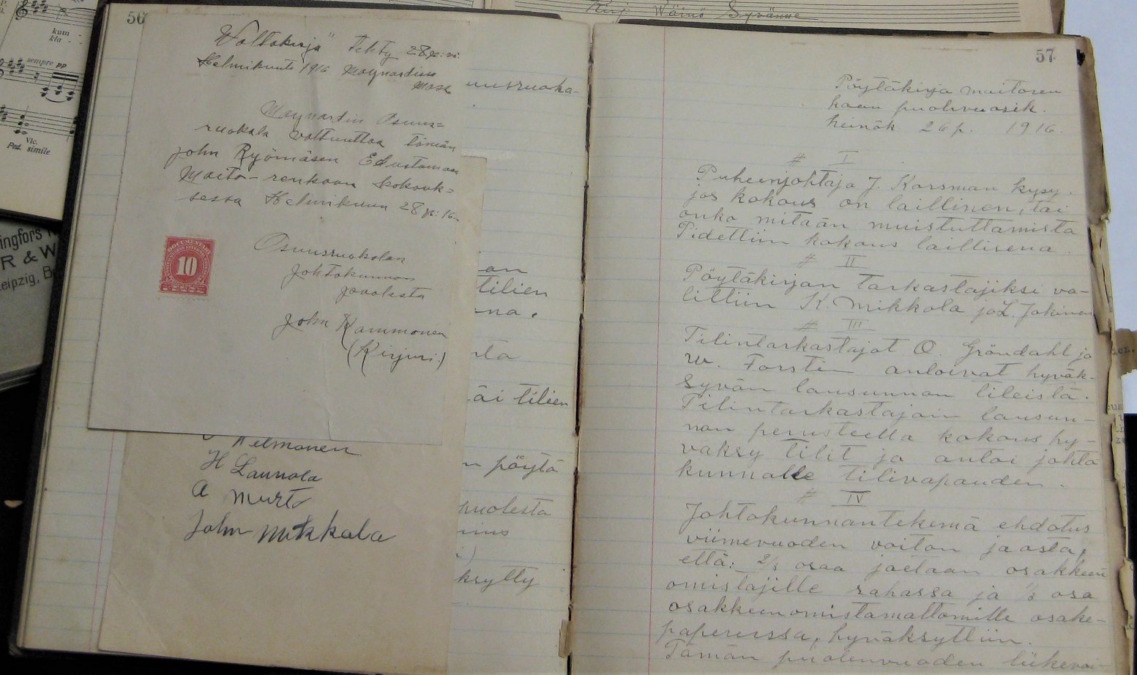 kum
sempre pp
Vlc.
Ped. simile
ngfors
R & W
eipzig, B
56
"Valtakirja" Tehty 28 p:nä
Helmikuuta 1916 Maynardissa
Mass
Maynardin Osuus-
ruokala valtuuttaa tämän
John Ryömäsen Edustamaan
Maito-renkaan kokouk-
sessa Helmikuun 28 p: 16
10
Osuusruokalan
Johtokunnan
puolesta
John Kammonen
(Kirjuri.)
H Launola
A Murto
John Mikkala
uusruoka-
tilien
na.
äi tilien
n pöytä
puolesta
ksytty
57
Pöytäkirja muitoren
haan puolivuosik.
heinäk 26 p. 1916.
# I
Puheenjohtaja J. Karsman kysy
jos kokous on laillinen, tai
onko mitään muistuttamista
Pidettiin kokous laillisena.
# II
Pöytäkirjan tarkastajiksi va-
littiin K. Mikkola ja L. Jokinen
# III
Tilintarkastajat O. Gröndahl ja
W. Forstin antoivat hyväk-
syvän lausunnon tileistä.
Tilintarkastajain lausun-
non perusteella kokous hy-
väksy tilit ja antoi johto
kunnalle tilivapauden.
# IV
Johtokunnan tekemä ehdotus
viimevuoden voiton jaosta,
että: osaa jaetaan osakkeen
omistajille rahassa ja osa
osakkeenomistamattomille osake-
papereissa, hyväksyttiin.
Tämän puolenvuoden liikevoi-